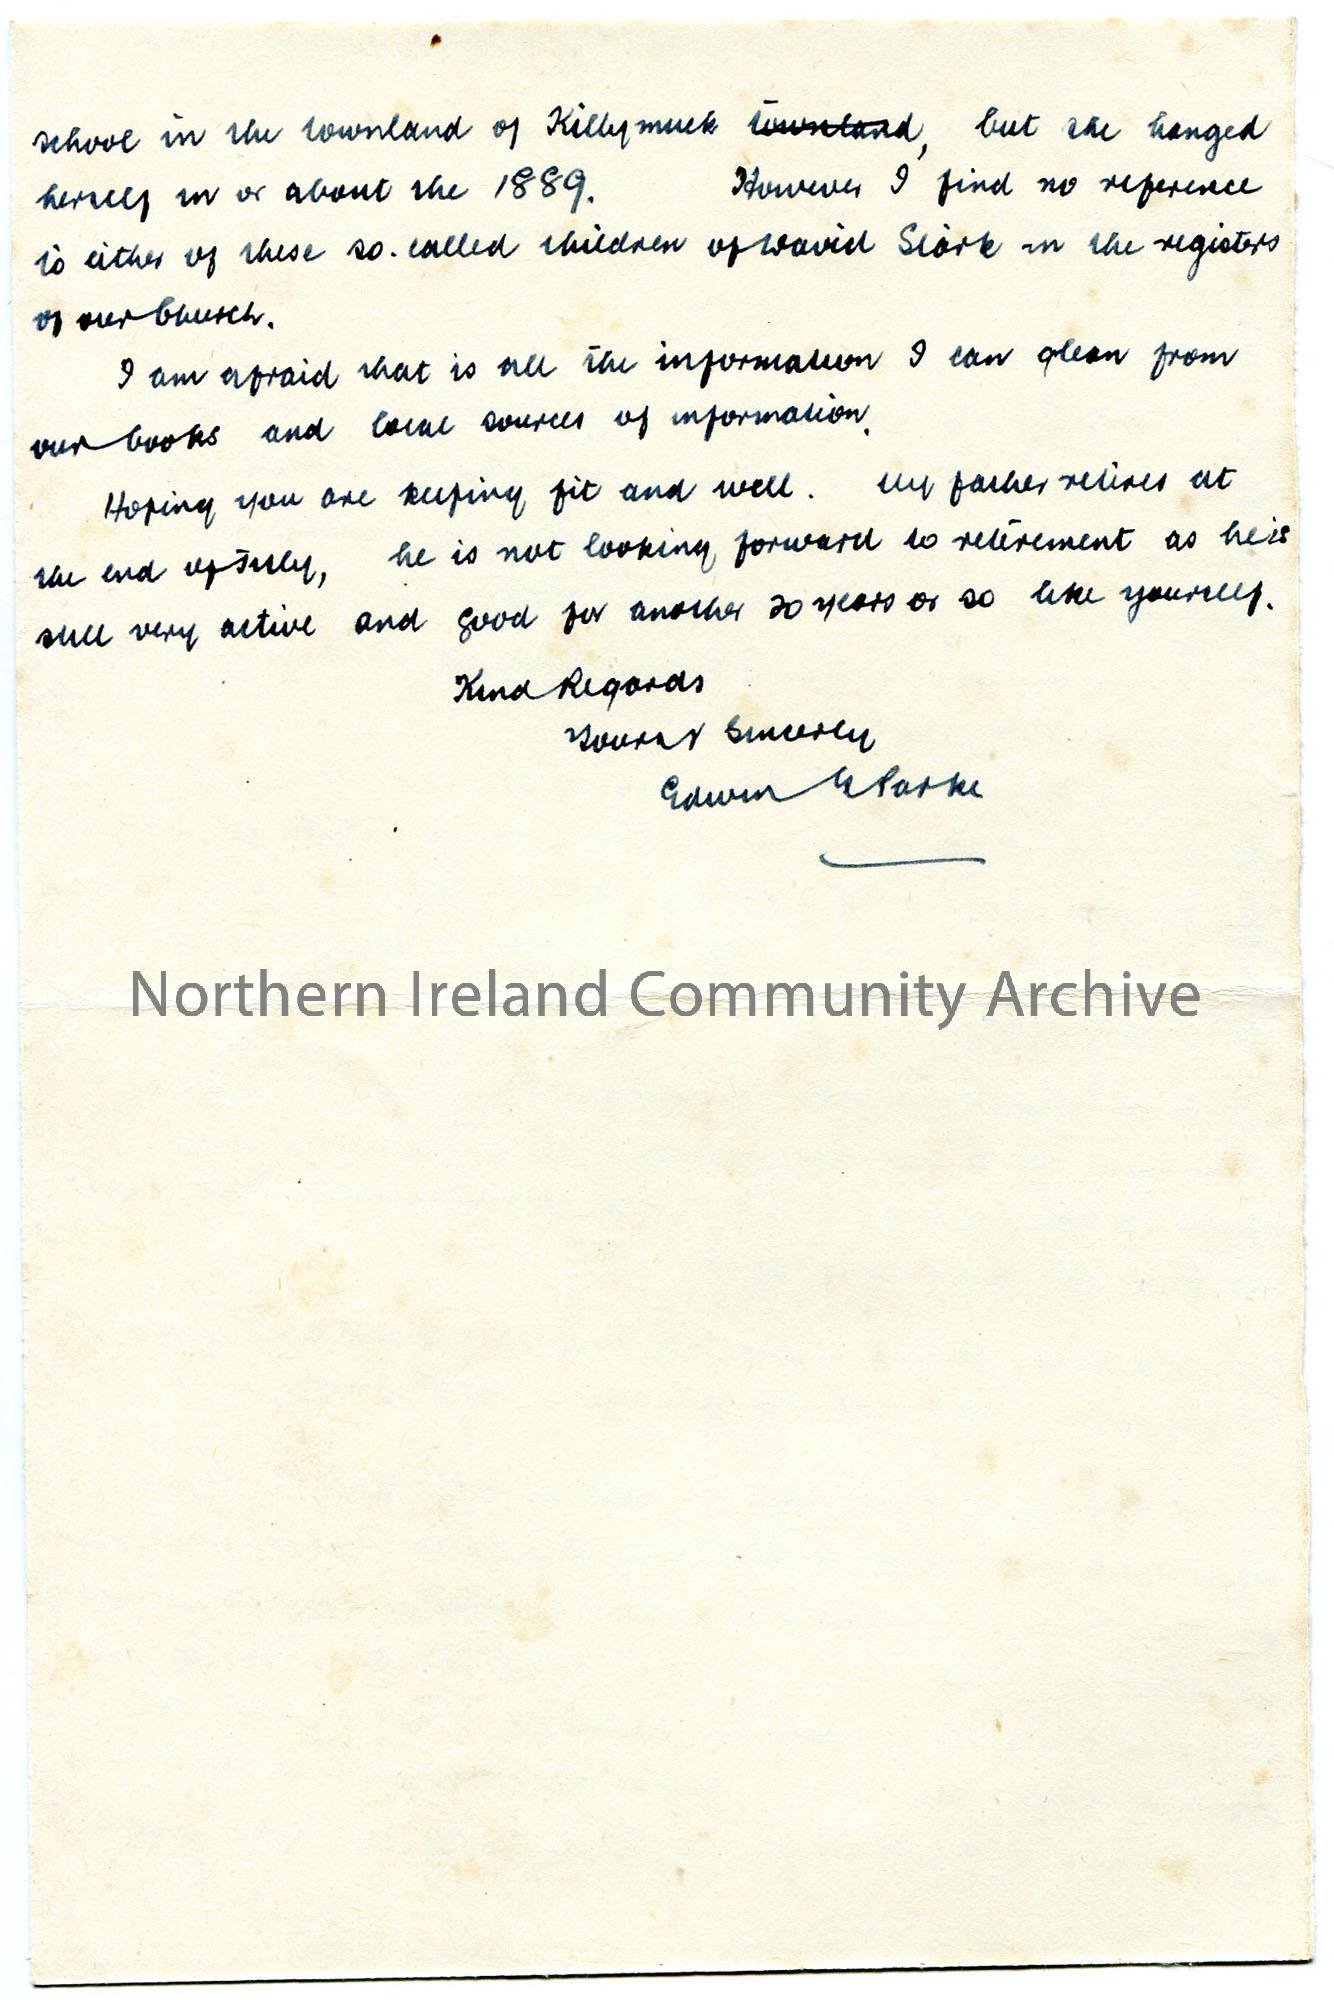 school in the townland of Killymuck townland, but she hanged
herself in or about the 1889. However I find no reference
to either of these so-called children of David Stark in the registers
of our Church.
I am afraid that is all the information I can glean from
our books and local sources of information.
Hoping you are keeping fit and well. My father retires at
the end of July, he is not looking forward to retirement as he is
still very active and good for another 20 years or so like yourself.
Kind Regards
Yours Sincerly
Edwin Clarke
Northern Ireland Community Archive